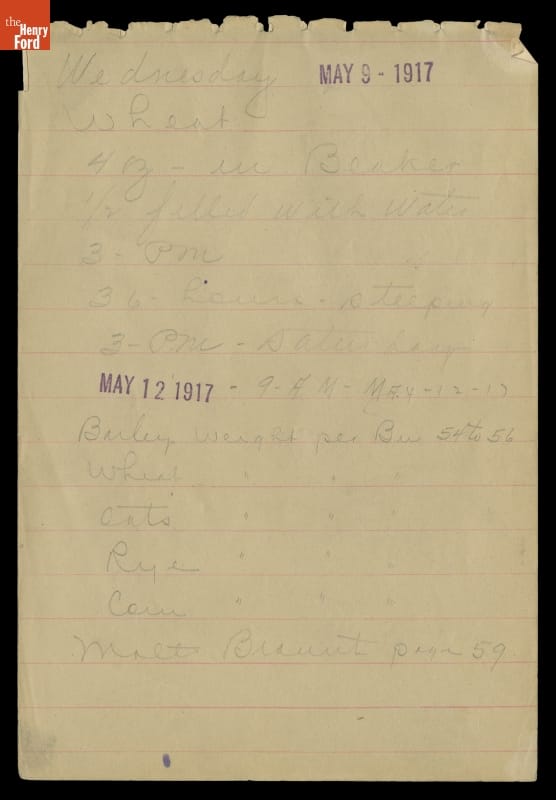 the Henry Ford
Wednesday MAY 9 - 1917
Wheat
4 oz - in Beaker
1/2 filled with Water
3 - PM
36 - hours - steeping
3 - P.M -
MAY 12 1917 - 9 - A M - MAY - 12 - 17
Barley weight per Bu 54 to 56
Wheat " " "
Oats " " "
Rye " " "
Corn " " "
Malt page 59